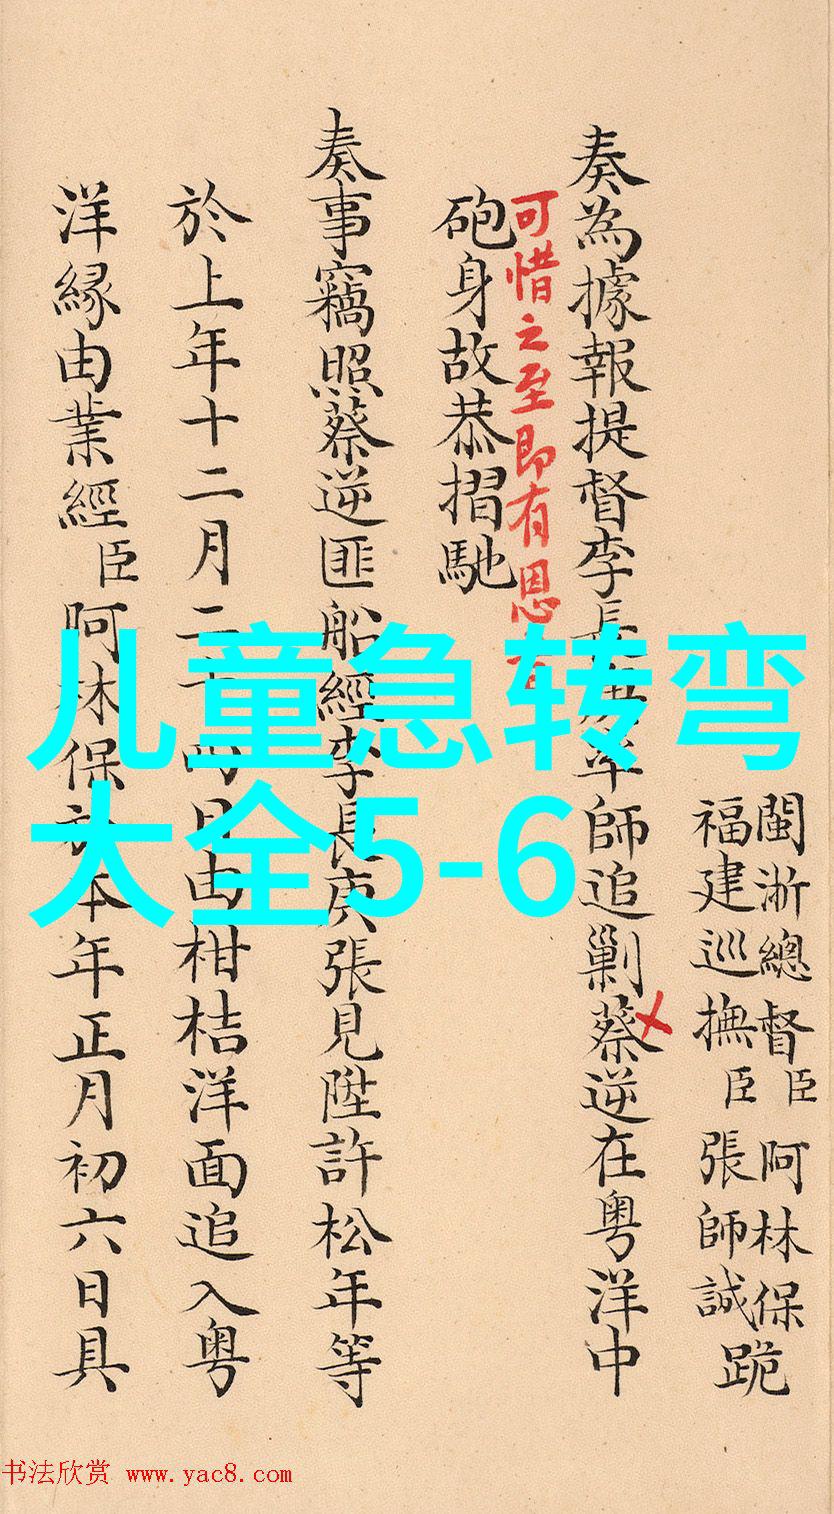 閩浙總督臣阿林保
福建巡撫臣張師誠跪
奏為據報提督李長庚率師追剿蔡逆在粤洋中
可惜之至即有恩
砲身故恭摺馳
奏事竊照蔡逆匪船經李長庚張見陞許松年等
於上年十二月二十四日由柑桔洋面追入粤
洋緣由業經臣阿林保於本年正月初六日具
儿童急转弯
大全5-6
书法欣赏 www.yac8.com